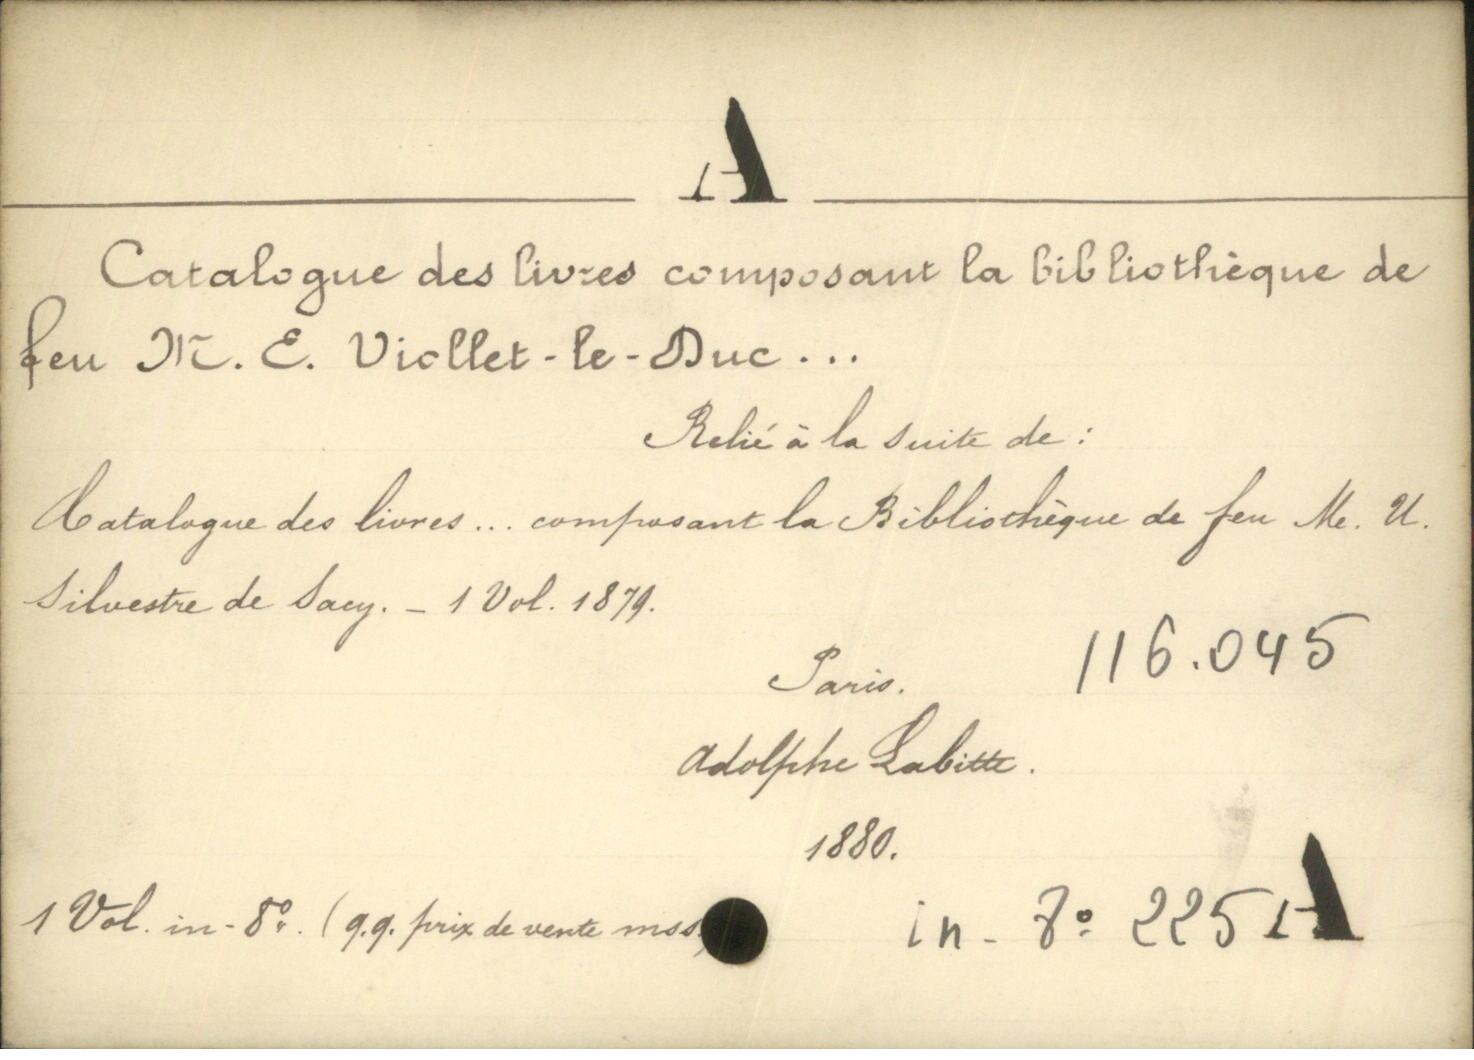 A
Catalogue des livres composant la bibliothèque de
feu M. E. Viollet-le-Duc...
Relié à la suite de :
Catalogue des livres... composant la Bibliothèque de feu M. U.
Silvestre de Sacy. - 1 Vol. 1879.
116.045
Paris.
Adolphe Labitte.
1880.
1 Vol. in-8°. (q.q. prix de vente mss
in-8° 225 A